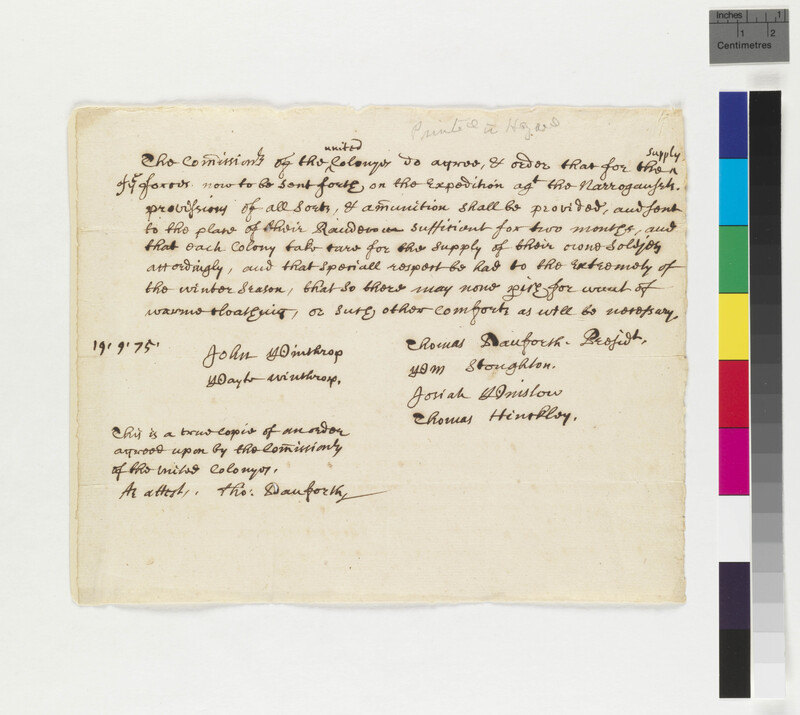 Inches 1
1 2
Centimetres
Printed in Hazard
The Commissionrs of the united Colonyes do agree, & order that for the supply
of ye forces now to be sent forth on the Expedition agt the Narrogansets.
provissions of all sorts, & amunition shall be provided, and sent
to the place of their Randevou sufficient for two months, and
that each Colony take care for the supply of their owne Soldjers
accordingly, and that speciall respect be had to the Extremety of
the winter season, that so there may none pish for want of
warme cloathing, or such other Comforts as will be necessary.
19. 9. 75.
John Winthrop
Wayte Winthrop.
Thomas Danforth. Presidt.
Wm Stoughton.
Josiah Winslow
Thomas Hinckley.
This is a true copie of an order
agreed upon by the Commissionrs
of the United Colonyes.
As attests. Tho: Danforth